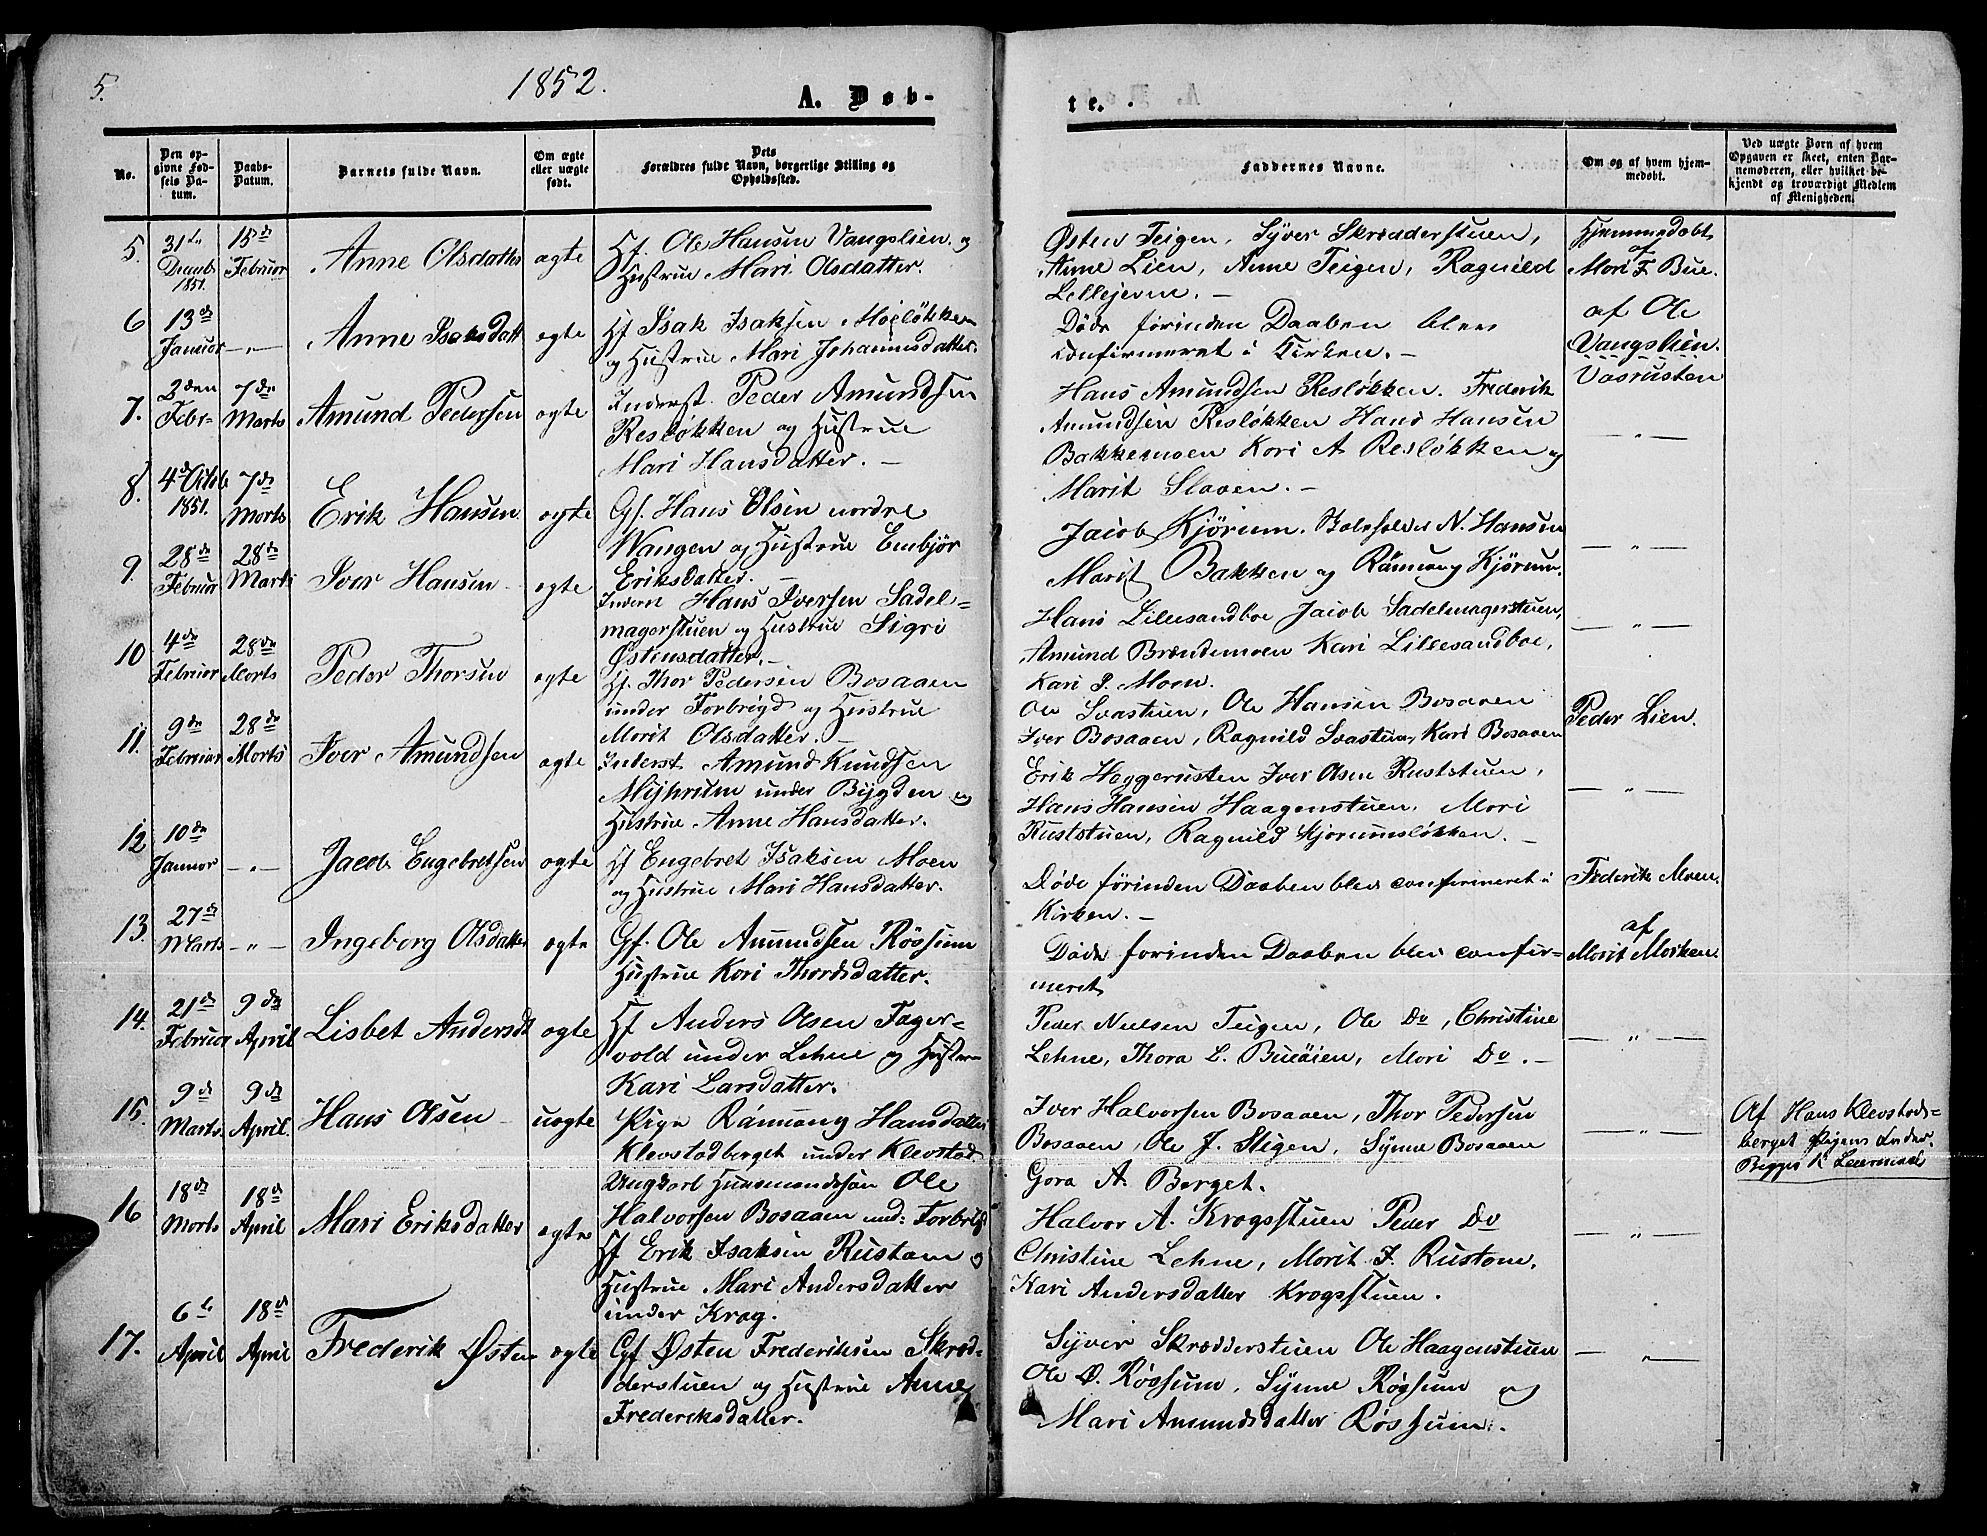 5.
1852.
A. Døb-
te.
No.
Den op-
givne Fød-
sels Da-
tum.
Daabs-
Datum.
Barnets fulde Navn.
Om ægte
eller uægte
født.
Dets
Forældres fulde Navn, borgerlige Stilling og
Opholdssted.
Faddernes Navne.
Om og af hvem hjem-
medøbt.
Ved uægte Børn af hvem
Opgaven er skeet, enten Bar-
nemoderen, eller hvilket be-
kjendt og troværdigt Medlem
af Menigheden.
5.
31te
Decemb
1851.
15de
Februar
Anne Olsdatter
ægte
Hf. Ole Hansen Vangslien og
Hustrue Mari Olsdatter.
Østen Teigen, Syver Skrædderstuen,
Anne Lien, Anne Teigen, Ragnild
Lellejevne. —
Hjemmedøbt
af
Mari F. Bue.
6
13de
Januar
— „ —
Anne Isaksdatt
ægte
Hf Isak Isaksen Moeløkken
og Hustrue Mari Johannesdatter.
Døde førinden Daaben blev
confirmeret i Kirken. —
af Ole
Vangslien.
7.
2den
Febr-
7de
Marts
Amund Pedersen
ægte
Inderst. Peder Amundsen
Resløkken og Hustrue
Mari Hansdatter. —
Hans Amundsen Resløkken. Frederik
Amundsen Resløkken Hans Hansen
Bakkemoen Kari A Resløkken og
Marit Slaaen. —
Vasrusten
— „ —
8.
4de Octob
1851.
7de
Marts
Erik Hansen
ægte
Gf. Hans Olsen nordre
Wangen og Hustrue Embjør
Eriksdatter. —
Jacob Kjørum, N. Hansen
Marit Bakken og Rønnoug Kjørum.
— „ —
9.
28de
Februar
28de
Marts
Iver Hansen
ægte
Inderst Hans Iversen Sadel-
magerstuen og Hustrue Sigri
Østensdatter. —
Hans Lillesandboe Jacob Sadelmagerstuen,
Amund Brændemoen Kari Lillesandboe,
Kari P. Moen.
— „ —
10
4de
Februar
28de
Marts
Peder Thorsen
ægte
Hf. Thor Pedersen Bosaaen
under Forbrigd og Hustrue
Marit Olsdatter. —
Ole Svastuen, Ole Hansen Bosaaen
Iver Bosaaen, Ragnild Svastuen, Kari Bosaaen
Peder Lien.
11.
9de
Februar
28de
Marts
Iver Amundsen
ægte
Inderst Amund Knudsen
Myhrum under Bygden og
Hustrue Anne Hansdatter.
Erik Heggerusten Iver Olsen Ruststuen,
Hans Hansen Haagenstuen, Mari
Ruststuen, Ragnild Kjørumsløkken. —
— „ —
12
10de
Januar
— „ —
Jacob Engebretsen
ægte
Hf Engebret Isaksen Moen
og Hustrue Mari Hansdatter.
Døde førinden Daaben blev confirmeret i
Kirken. —
Frederik Moen.
13.
27de
Marts
— „ —
Ingeborg Olsdatter
ægte
Gf. Ole Amundsen Røssum
Hustrue Kari Thordsdatter.
Døde førinden Daaben blev confir-
meret
af
Marit Morken.
14.
21de
Februar
9de
April
Lisbet Andersdt
ægte
Hf Anders Olsen Fager-
vold under Lehne og Hustrue
Kari Larsdatter.
Peder Nielsen Teigen, Ole Do, Christine
Lehne, Thora L. Bueøien, Mari Do. —
— „ —
15.
9de
Marts
9de
April.
Hans Olsen
uægte
Pige Rønnoug Hansdatter
Klevstadberget under Klevstad
Ungkarl Huusmandssøn Ole
Halvorsen Bosaaen und: Forbrigd
Iver Halvorsen Bosaaen, Thor Pedersen
Bosaaen, Ole J. Stigen, Synne Bosaaen
Gora A. Berget.
— „ —
Af Hans Klevstads-
berget Pigens Fader.
Begges 1ste Leiermaal
16
18de
Marts
18de
April
Mari Eriksdatter
ægte
Hf Erik Isaksen Rustaen og
Hustrue Mari Andersdatter
under Krog.
Halvor A. Krogsstuen Peder Do
Christine Lehne, Marit I. Rustoen,
Kari Andersdatter Krogsstuen.
— „ —
17.
6te
April
18de
April
Frederik Østen
ægte
Gf Østen Frederiksen Skræd-
derstuen og Hustrue Anne
Frederiksdatter.
Syver Skrædderstuen Ole Haagenstuen
Ole Ø. Røssum, Synne Røssum og
Mari Amundsdatter Røssum.
— „ —